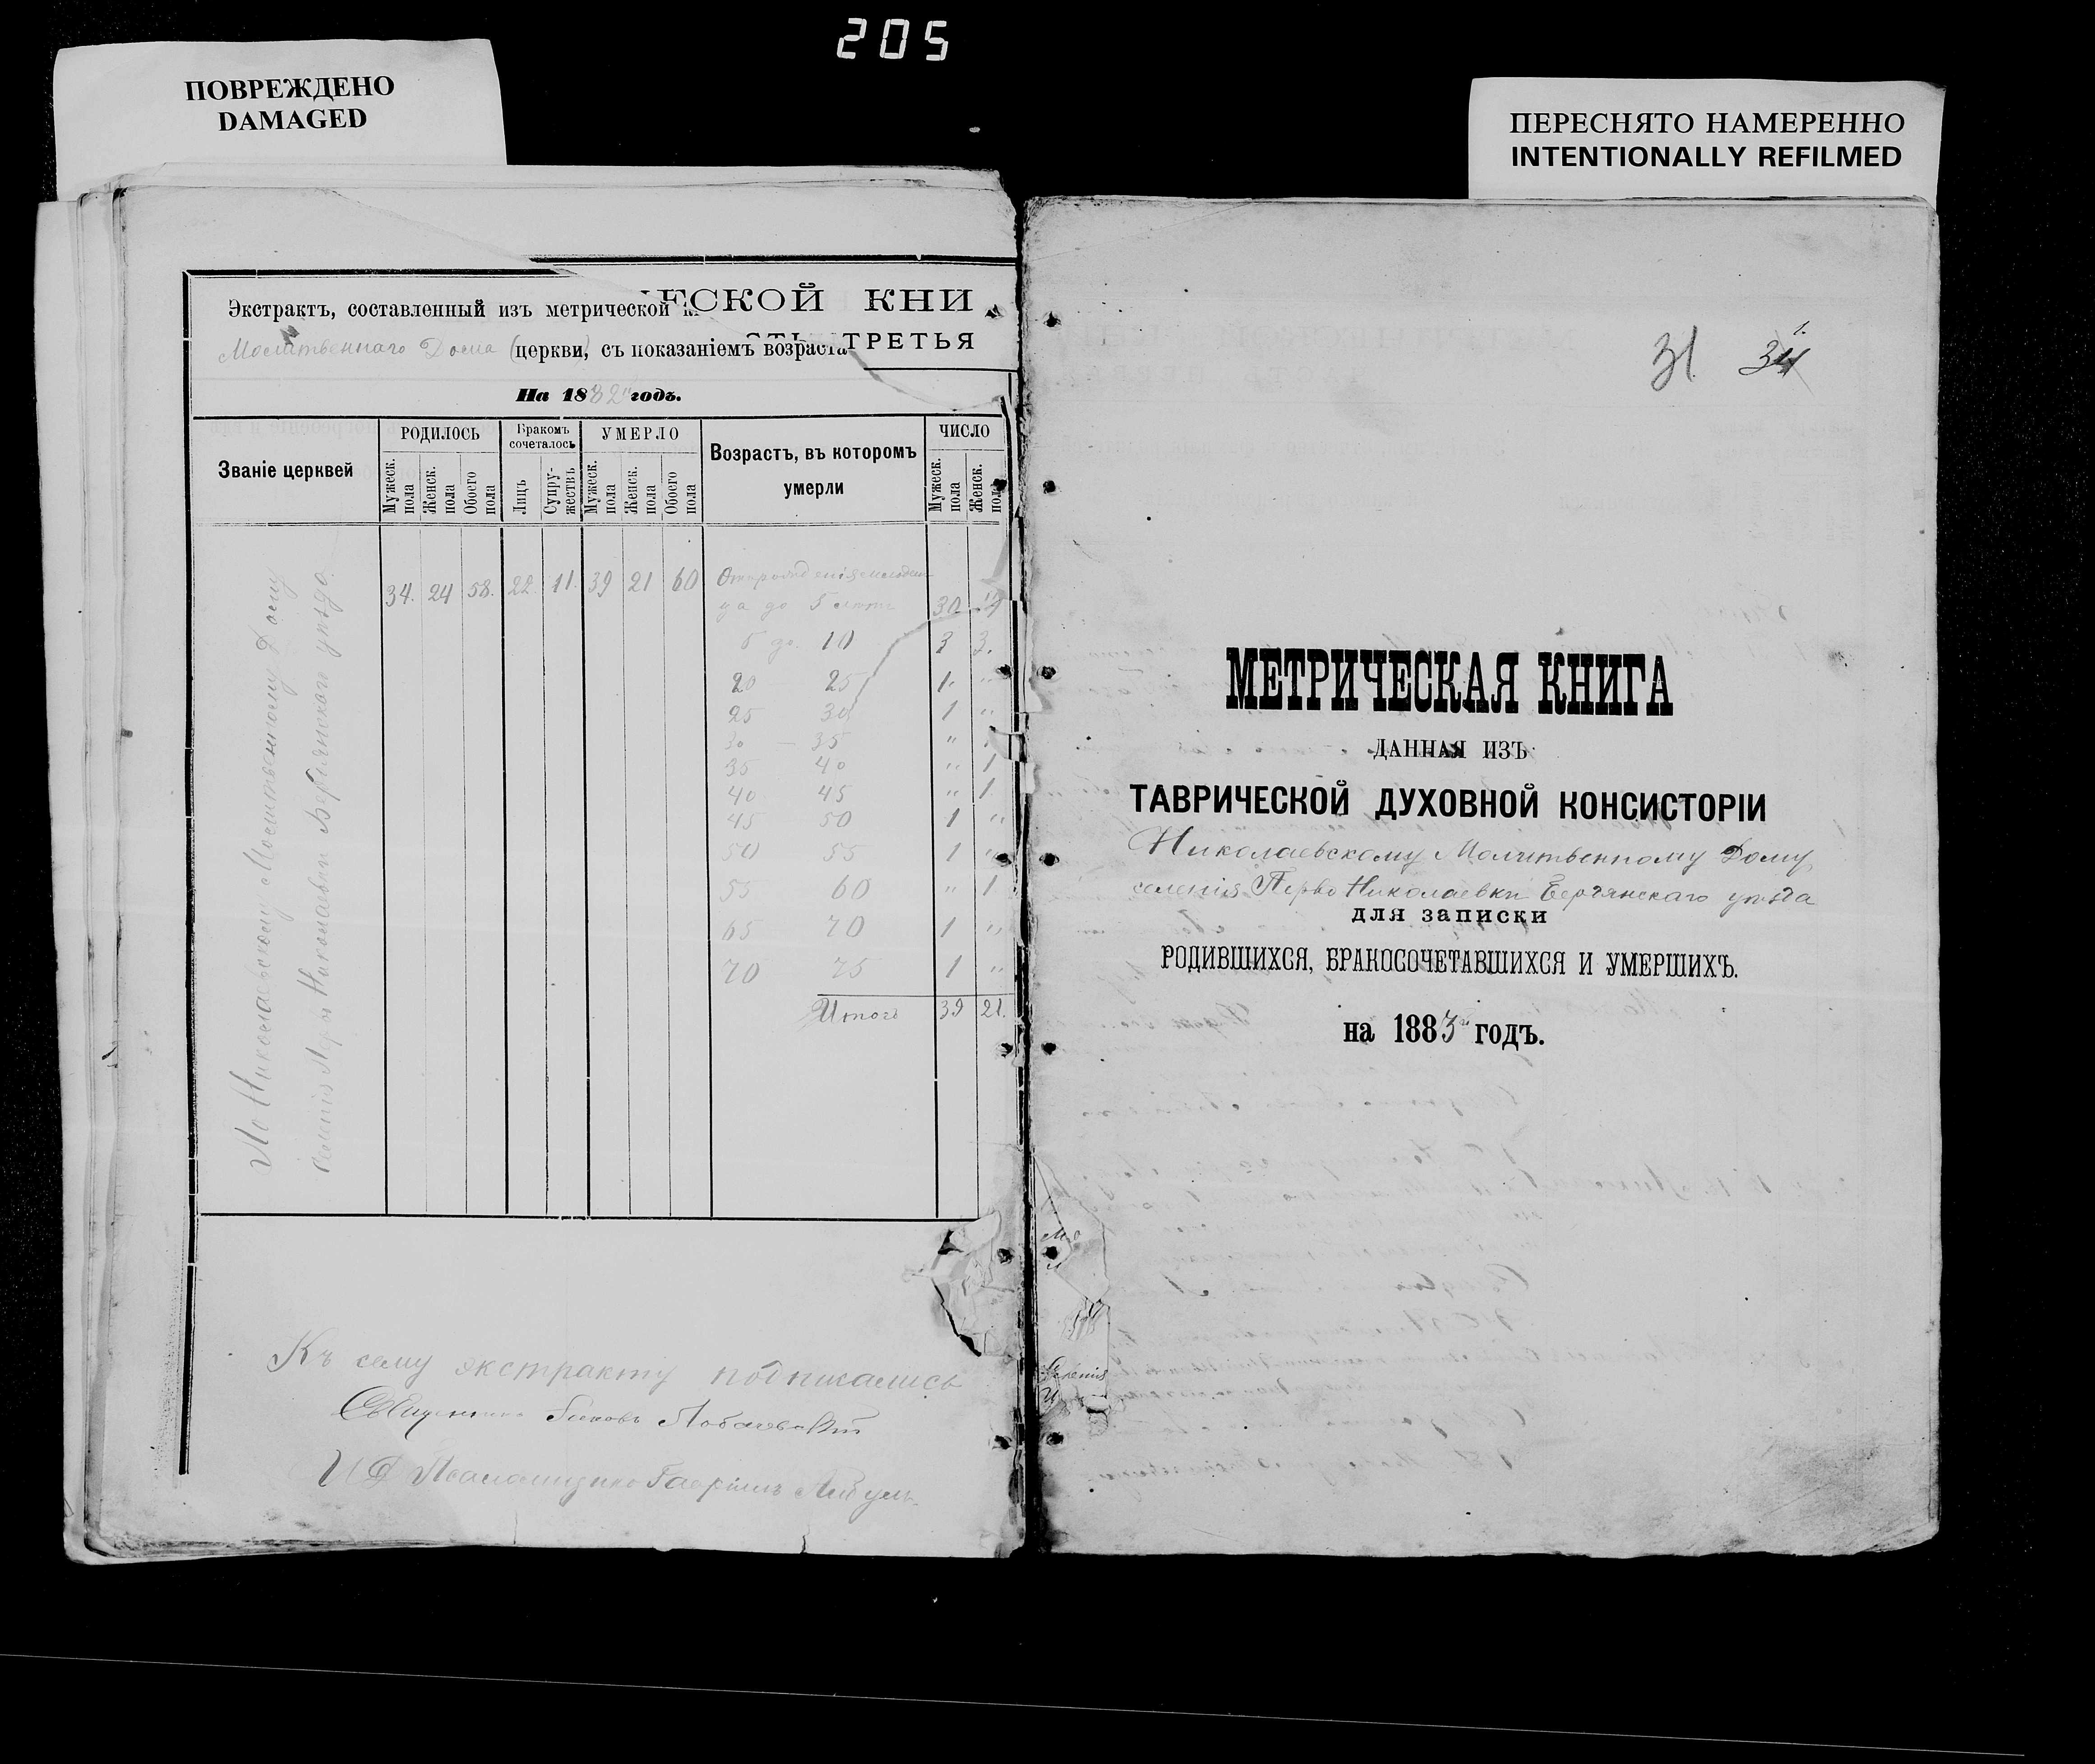 205
ПОВРЕЖДЕНО
DAMAGED
ПЕРЕСНЯТО НАМЕРЕННО
INTENTIONALLY REFILMED
ЧЕСКОЙ КНИ
Экстрактъ, составленный изъ метрической к
СТЬ ТРЕТЬЯ
Молитвеннаго Дома (церкви, съ показаніемъ возраста
На 1882 годъ.
Званіе церквей
РОДИЛОСЬ
Мужеск. пола
Женск. пола
Обоего пола
Бракомъ сочеталось
Лицъ
Супружествъ
УМЕРЛО
Мужеск. пола
Женск. пола
Обоего пола
Возрастъ, въ которомъ умерли
ЧИСЛО
Мужеск. пола
Женск. пола
По Николаевскому Молитвенному Дому
селенія Перво Николаевки Бердянскаго уѣзда
34. 24 58. 22. 11. 39 21 60
до 5 30
5 до 10 3 3.
20 25 1. "
25 30 1 "
30 — 35 "
35 40 " 1
40 45 " 1
45 50 1 "
50 55 1 "
55 60 " 1
65 70 1 "
70 75 1 "
Итого 39 21.
Къ сему экстракту подписались
Священникъ Іаковъ
И Д Псаломщика Гавріилъ
31. 34 1.
МЕТРИЧЕСКАЯ КНИГА
ДАННАЯ ИЗЪ
ТАВРИЧЕСКОЙ ДУХОВНОЙ КОНСИСТОРІИ
Николаевскому Молитвенному Дому,
селенія Перво Николаевки Бердянскаго уѣзда
для записки
РОДИВШИХСЯ, БРАКОСОЧЕТАВШИХСЯ И УМЕРШИХЪ.
на 1883й годъ.